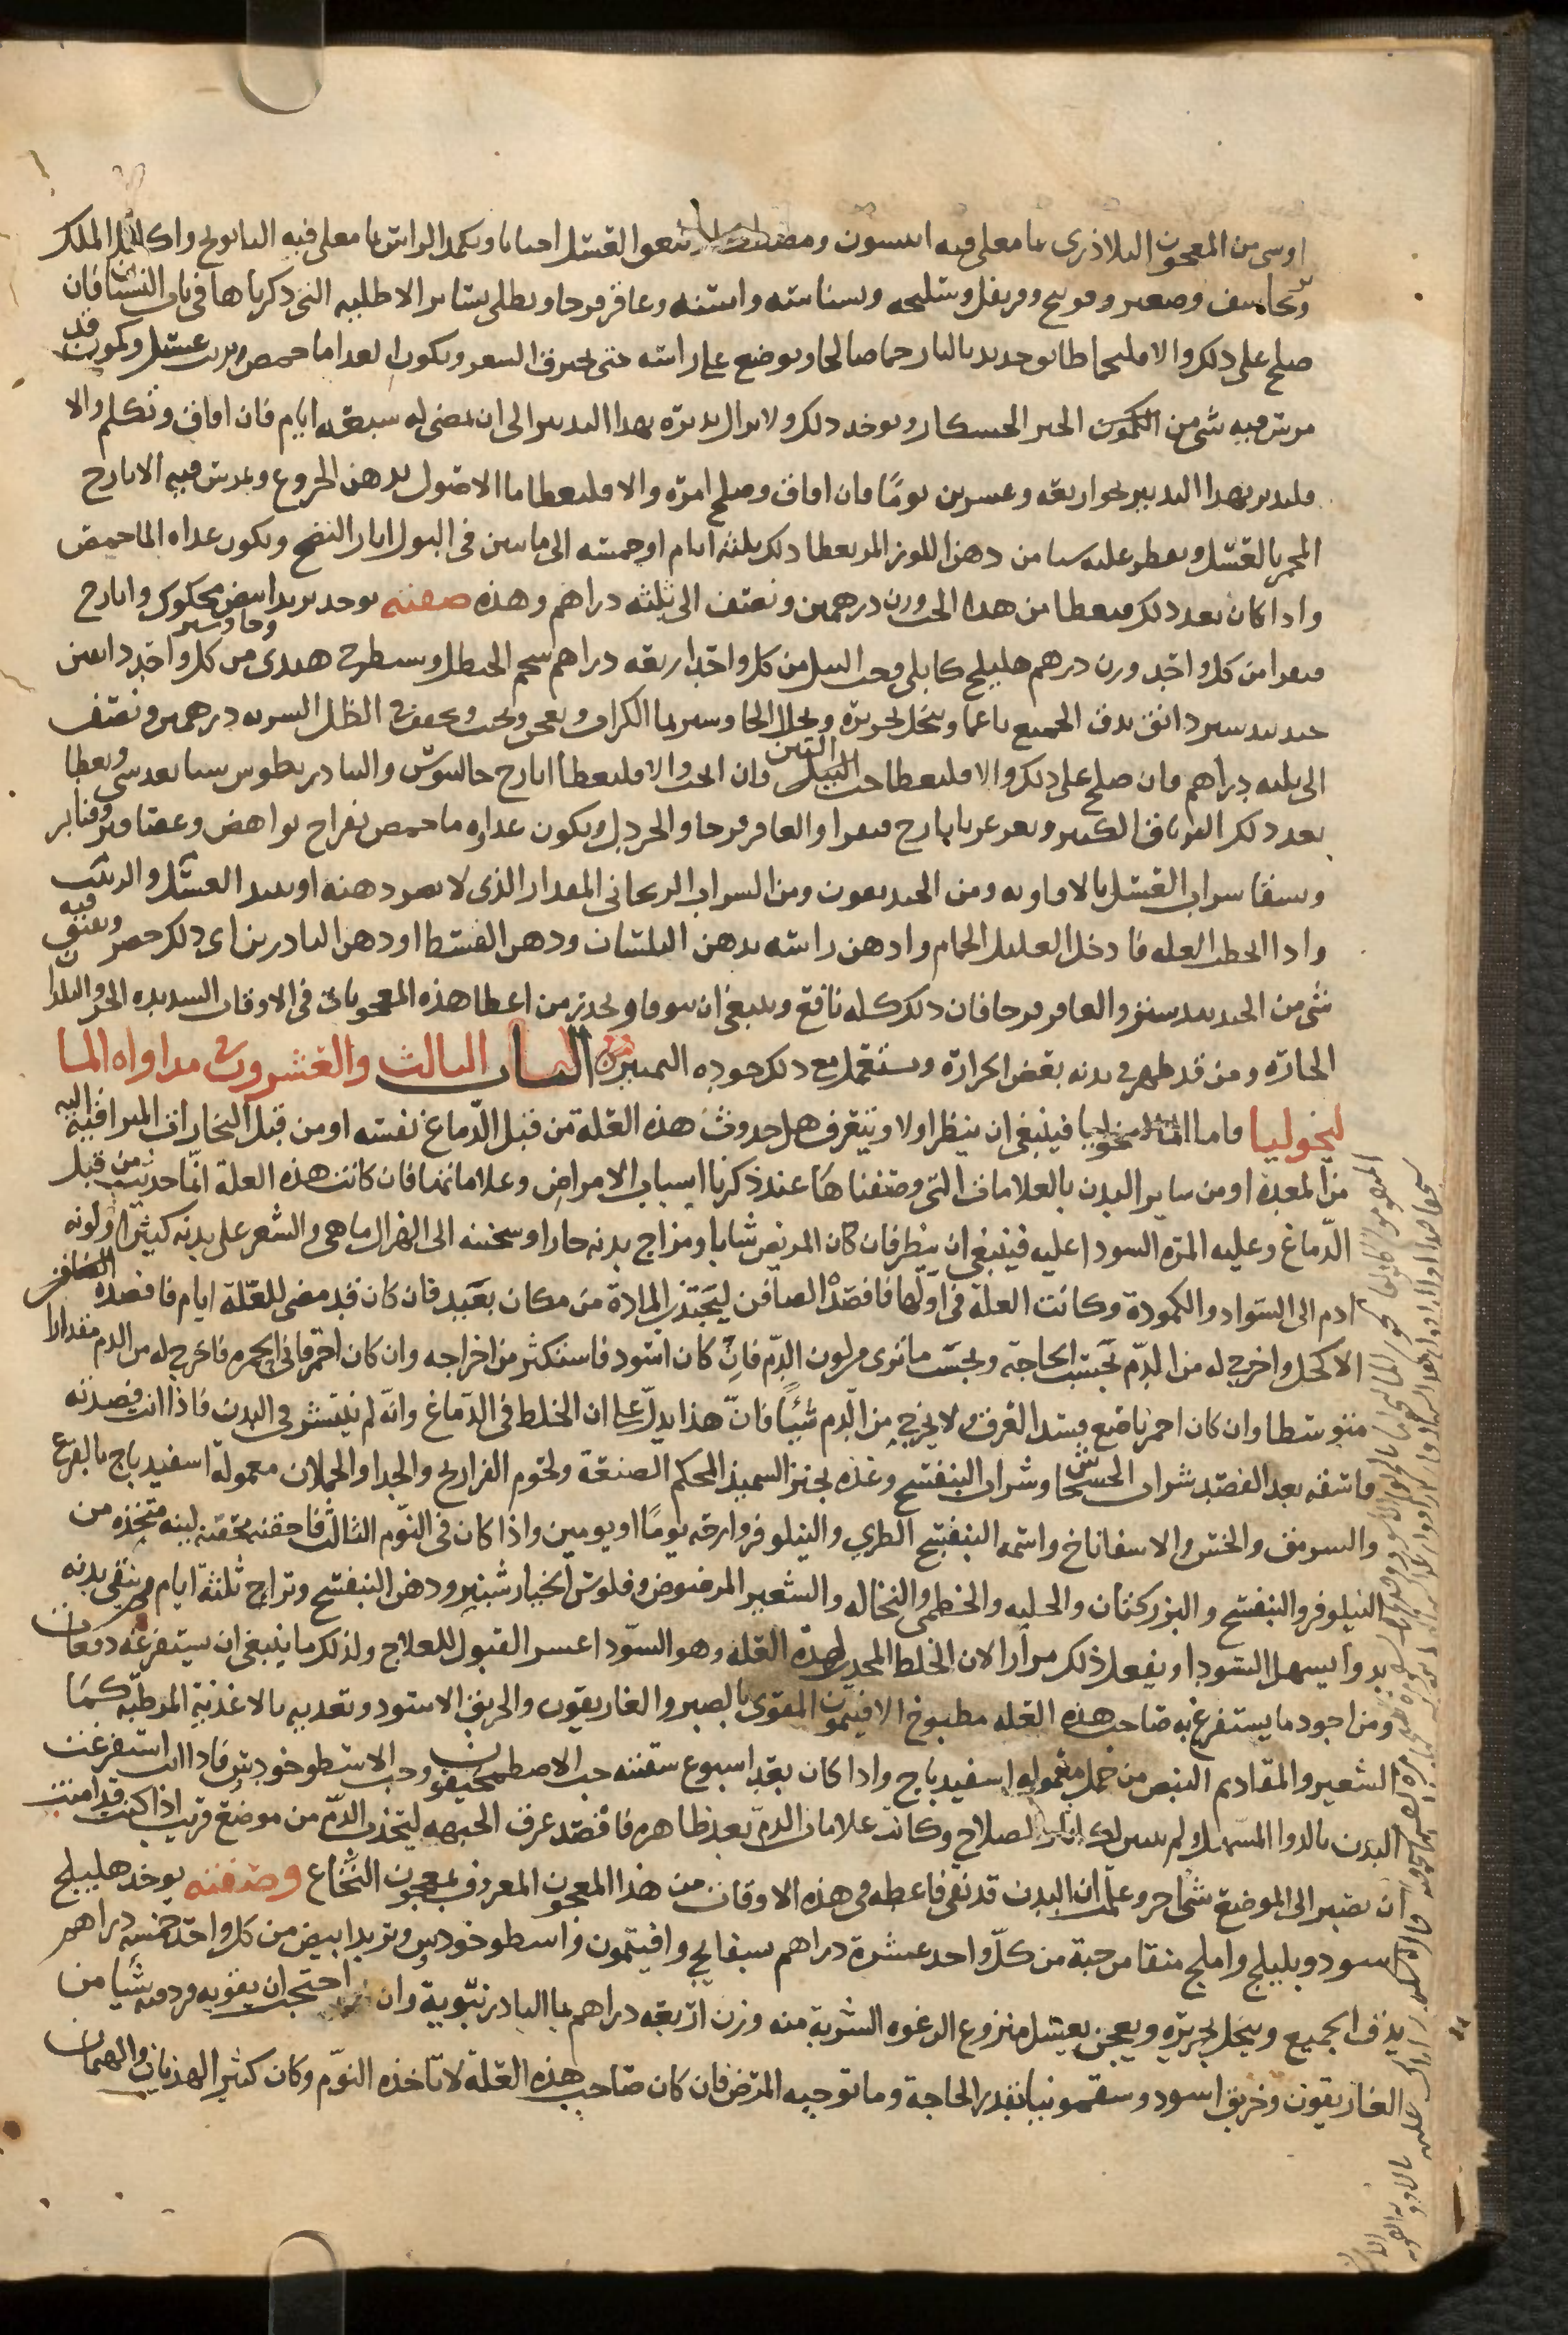 او شى من المعجون البلاذرى بما معلى فيه انيسون ومصطكى ويلعق العسل احيانا ويكمد الراس بما معلى فيه البابونج واكليل الملك
وصعتر وفوتنج وقرنفل وسليخه وبسباسه واشنه وعاقرقرحا ويطلى بسائر الاطليه التى ذكرناها فى باب النسيان فان
صلح على ذلك والا فليحما طابق حديد بالنار حما صالحا ويوضع على راسه حتى يحترق الشعر ويكون الغدا ما حمص وزيت عسل وكمون قد
مرس فيه شى من الكمون الخبز الخشكار ويوخذ ذلك ولا يزال يدبره بهذا التدبير الى ان يمضى له سبعه ايام فان افاق وتكلم والا
فليدبر بهذا التدبير نحو اربعه وعشرين يومًا فان افاق وصلح امره والا فليعطا ما الاصول بدهن الخروع ويمرس فيه الايارج
المخمر بالعسل ويقطر عليه شيا من دهن اللوز المر يعطا ذلك ثلثه ايام او خمسه الى ما يبين فى البول اثار النضج ويكون غداه الما حمص
واذا كان بعد ذلك فيعطا من هذا الحب وزن درهمين ونصف الى ثلثه دراهم وهذه صفته يوخذ تربد ابيض محكوك وايارج
فيقرا من كل واحد وزن درهم هليلج كابلى وحب النيل من كل واحد اربعه دراهم شحم الحنظل وشيطرج هندى وجاوشير من كل واحد دانقين
جندبيدستر دانق يدق الجميع ناعما وينخل بحريره ويحل الجاوشير بما الكراث ويعجن ويحبب ويجفف فى الظل الشربه درهمين ونصف
الى ثلثه دراهم فان صلح على ذلك والا فليعطا حب النيل وان انجب والا فليعطا ايارج جالينوس والثيادريطوس شيا بعد شى ويعطا
بعد ذلك الترياق الكبير ويغرغر بايارج فيقرا والعاقرقرحا والخردل ويكون غداوه ما حمص بفراخ نواهض وعصافير وقنابر
ويسقا شراب العسل بالافاويه ومن الخنديقون ومن الشراب الريحانى المقدار الذى لا يضر ذهنه او نبيد العسل والزبيب
واذا انحطت العله فادخل العليل الحمام وادهن راسه بدهن البلسان ودهن القسط او دهن الناردين اى ذلك حضر ويفتق فيه
شى من الجندبيدستر والعاقرقرحا فان ذلك كله نافع وينبغى ان يتوقا ويحذر من اعطا هذه المعجونات فى الاوقات الشديده الحر والبلدان
الحاره ومن قد ظهر فى بدنه بعض الحراره ويستعمل مع ذلك جوده التمييز الباب الثالث والعشرون فى مداواه الما
ليخوليا فاما الماليخوليا فينبغى ان ينظر اولا ويتعرف هل حدوث هذه العلة من قبل الدّماغ نفسه او من قبل البخارات المتراقيه اليه
من المعده او من ساير البدن بالعلامات التى وصفناها عند ذكرنا اسباب الامراض وعلاماتها فان كانت هذه العلة انّما حدثت من قبل
الدّماغ وغلبه المرّه السودا عليه فينبغى ان ينظر فان كان المريض شابا ومزاج بدنه حارا وسحنته الى الهزال ما هى والشعر على بدنه كثيرا ولونه
ادم الى السّواد والكمودة وكانت العلّة فى اوّلها فافصدْ الصافن ليجتذب المادة من مكان بعيد فان كان قد مضى للعّلة ايام فافصده الصافن
الاكحل واخرج له من الدّم بحسب الحاجة وبحسب ما ترى من لون الدّم فان كان اسود فاستكثر من اخراجه وان كان احمر قانى الحمره فاخرج له من الدم مقدارا
متوسطا وان كان احمر ناصع فشد العرق ولا يخرج من الّدم شيًا فانّ هذا يدلّ على ان الخلط فى الدّماغ وانّه لم ينتشر فى البدن فاذا انت فصدته
فاسقه بعد الفصد شراب الخشخاش وشراب البنفسج وغذه بخبز السميذ المحكم الصنعة ولحوم الفراريج والجدا والحملان معموله اسفيدباج بالقرع
والسرمق والخس والاسفاناخ واشمه البنفسج الطرى والنيلوفر وارحه يومًا او يومين واذا كان فى اليوم الثالث فاحقنه بحقنة لينه متخذه من
النيلوفر والبنفسج والبزر كتان والحلبه والخطمى والنخاله والشعير المرضوض وفلوس الخيار شنبر ودهن البنفسج وتراح ثلثة ايام وينقى بدنه
بدوا يسهل السّودا ويفعل ذلك مرارا لان الخلط المحدث لهذه العله وهو السّودا عسر القبول للعلاج ولذلك ما ينبغى ان يستفرغه دفعات
ومن اجود ما يستفرغ به صاحب هذه العله مطبوخ الافيثمون المقوى بالصبر والغاريقون والخربق الاسود وتغديه بالاغذية المرطبّه كما
الشعير والمقادم البيض من حمل معموله اسفيدباج واذا كان بعد اسبوع سقيته حب الاصطمخيقون وحب الاسطوخودس فاذا انت استفرغت
البدن بالدوا المسهل ولم يتبين لك اثار الصلاح وكانت علامات الدّم بعد ظاهره فافصد عرق الجبهه ليتحذب الدّم من موضع قريب اذا كنت قد امنت
ان يصير الى الموضع شى اخر وعلمت ان البدن قد نقى فاعطه فى هذه الاوقات من هذا المعجون المعروف بمعجون النّجاح وصفته يوخذ هليلج
اسود وبليلج واملج منقا من حبه من كلّ واحد عشرة دراهم بسفايج وافيثمون واسطوخودس وتربد ابيض من كل واحد خمسه دراهم
يدق الجميع وينخل بحريره ويعجن بعسل منزوع الرغوه الشربة منه وزن اربعه دراهم بما البادرنبّوية وان احتجت ان يقويه فزد فيه شيا من
الغاريقون وخربق اسود وسقمونيا بقدر الحاجة وما توجبه المرض فان كان صاحب هذه العلّة لا تاخذه النوّم وكان كثير الهذيان والهيمان